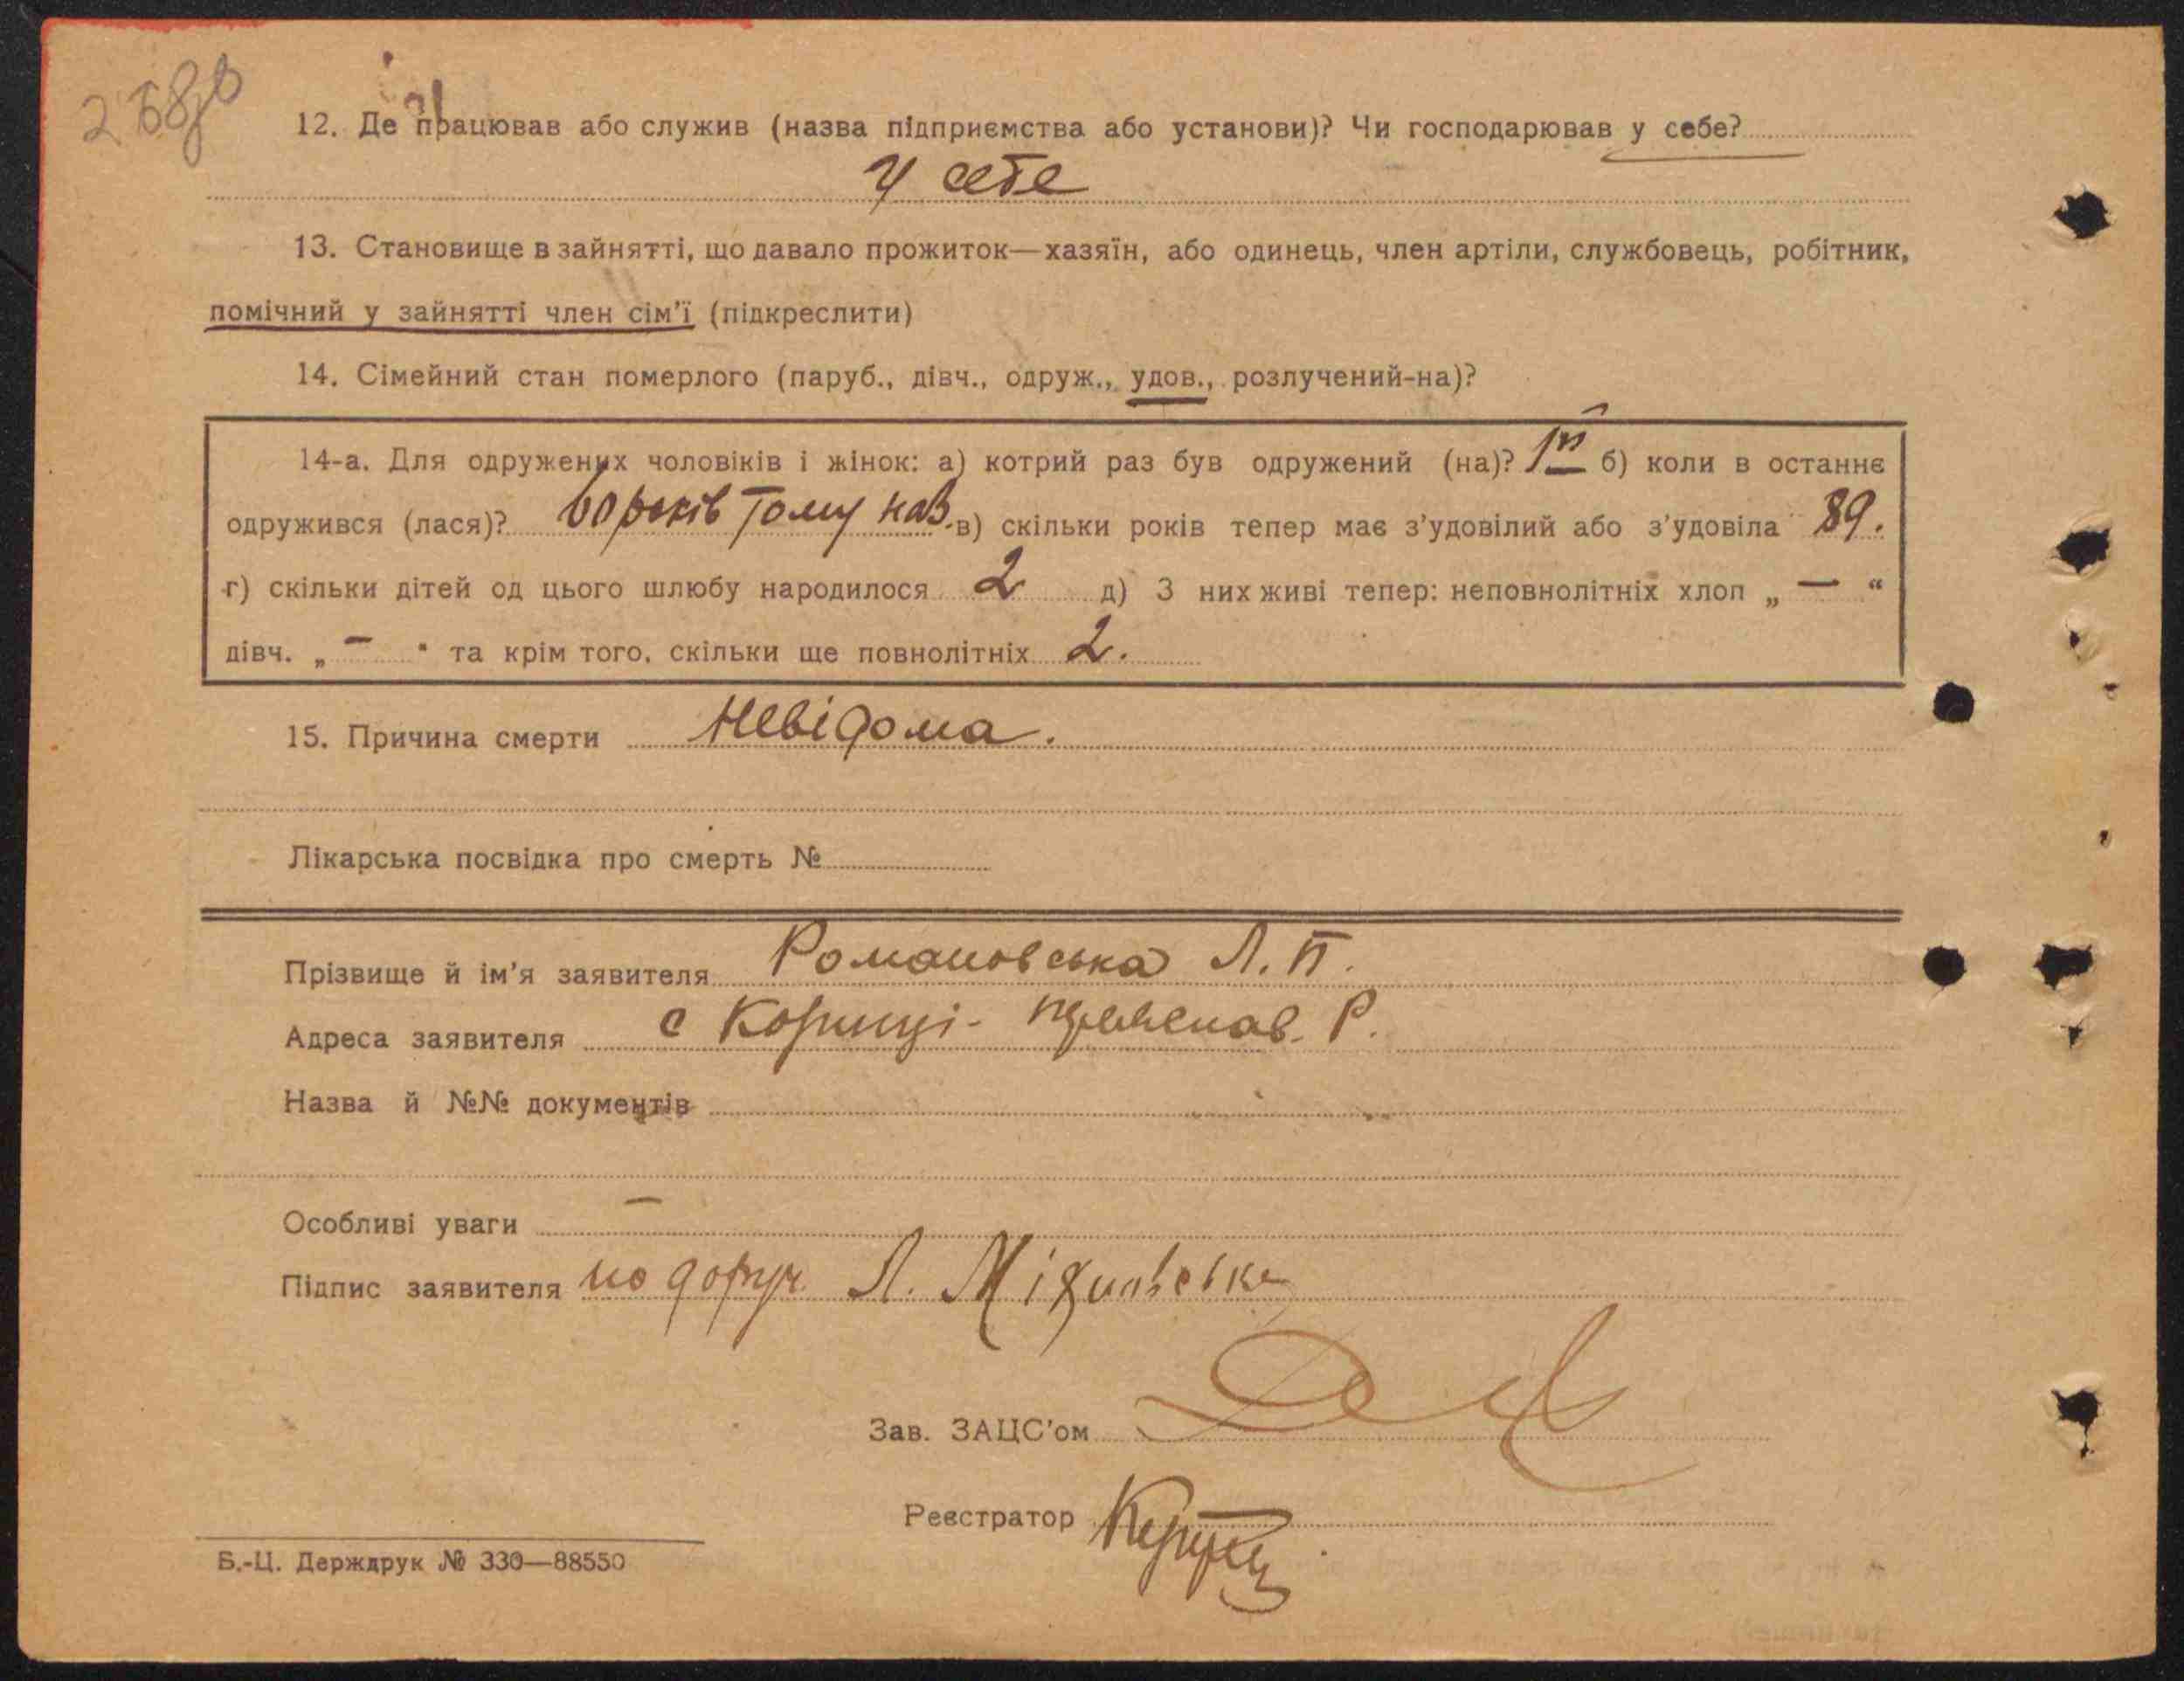 12. Де працював або служив (назва підприємства або установи)? Чи господарював у себе?
У себе
13. Становище в зайнятті, що давало прожиток—хазяїн, або одинець, член артіли, службовець, робітник,
помічний у зайнятті член сім'ї (підкреслити)
14. Сімейний стан померлого (паруб., дівч., одруж., удов., розлучений-на)?
14-а. Для одружених чоловіків і жінок: а) котрий раз був одружений (на)? 1й б) коли в останнє
одружився (лася)? 60 років тому наз. в) скільки років тепер має з'удовілий або з'удовіла 89.
г) скільки дітей од цього шлюбу народилося 2 д) З них живі тепер: неповнолітніх хлоп „ — “
дівч. „ — “ та крім того, скільки ще повнолітніх 2.
15. Причина смерти Невідома.
Лікарська посвідка про смерть №
Прізвище й ім'я заявителя Романовська Л. П.
Адреса заявителя с Р.
Назва й №№ документів
Особливі уваги —
Підпис заявителя по доруч. Л.
Зав. ЗАЦС'ом
Реєстратор
Б.-Ц. Держдрук № 330—88550